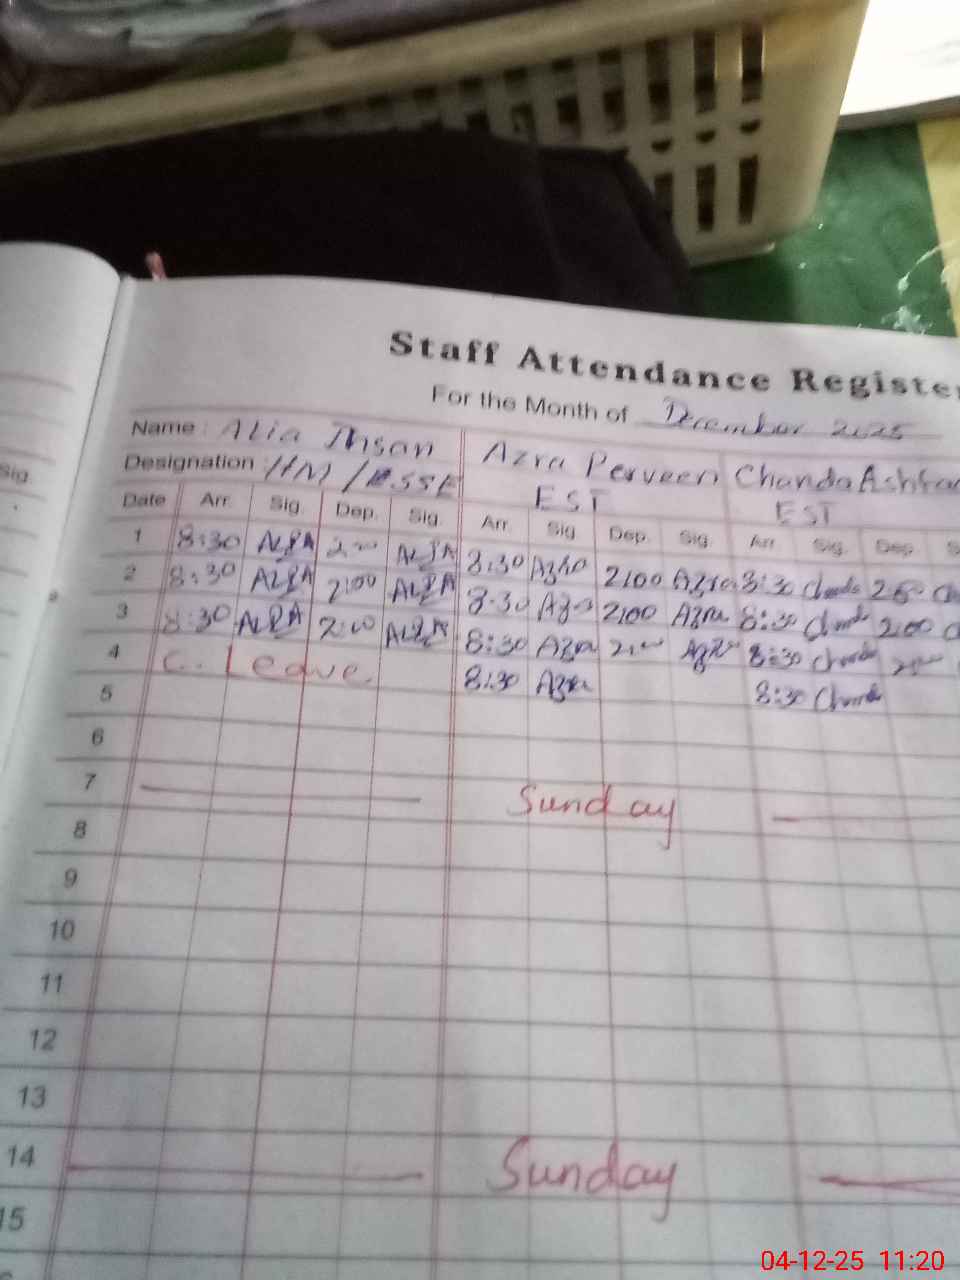 Staff Attendance Register
For the Month of December 2025
Name: Alia Ihsan Azra Perveen Chanda Ashfa
Designation: HM / ESSE EST EST
Date Arr. Sig. Dep. Sig. Arr. Sig. Dep. Sig. Arr. Sig. Dep. S
1 8:30 2:00 8:30 Azra 2:00 Azra 8:30 Chanda 2:00 Ch
2 8:30 2:00 8:30 Azra 2:00 Azra 8:30 Chanda 2:00 C
3 8:30 2:00 8:30 Azra 2:00 Azra 8:30 Chanda 2:00
4 C. Leave 8:30 Azra 8:30 Chanda
5
6
7 Sunday
8
9
10
11
12
13
14 Sunday
15
Sig.
04-12-25 11:20